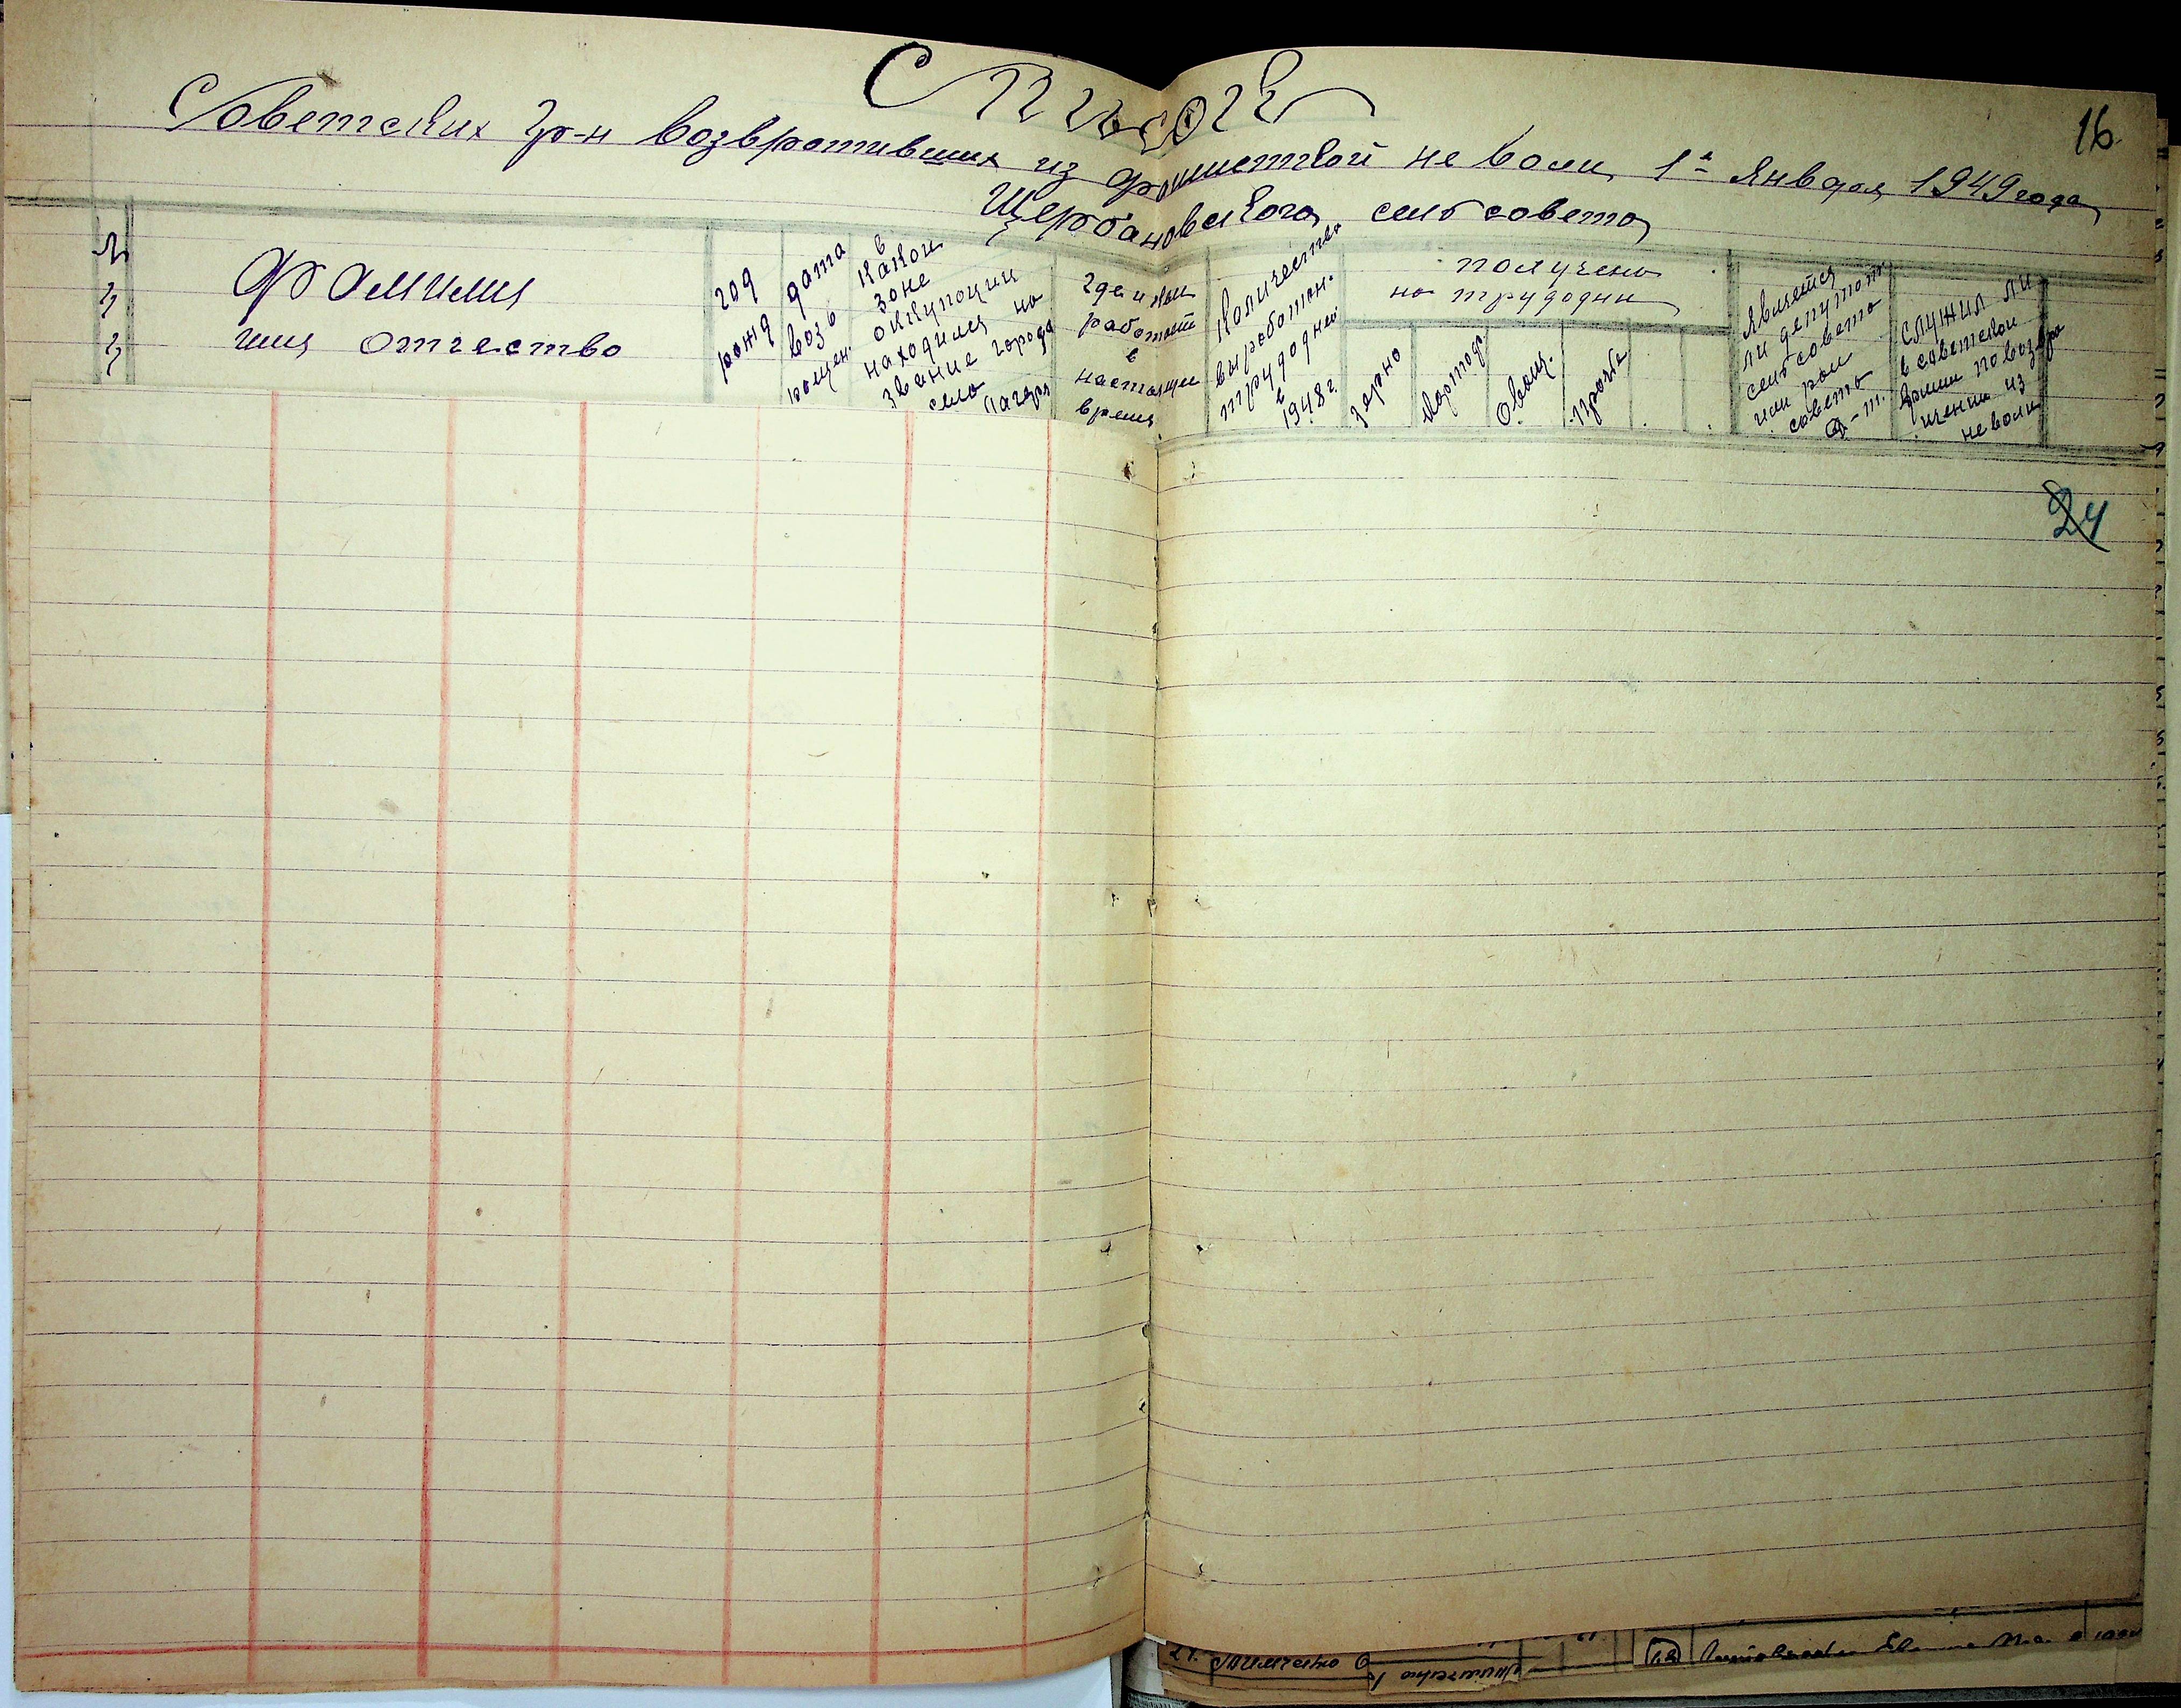 16
Список
Советских гр-н возвративших из фашисткой не воли 1е января 1949 года
Щербановского сельсовета
№
Фамилия
имя отчество
год
рожд
дата
возв
ращен.
в
какой
зоне
оккупоции
находился на
звание города
село лагеря
где и
работает
в
настоящее
время
количество
выработан.
трудодней
в
1948 г.
получено
на трудодни
зерно
картоф
овощ.
проч
является
ли депутат
сельсовета
или рай
совета
д-т.
служил ли
в советской
армии по возвра
щении из
неволи
24
21. Тимченко
Тимченко